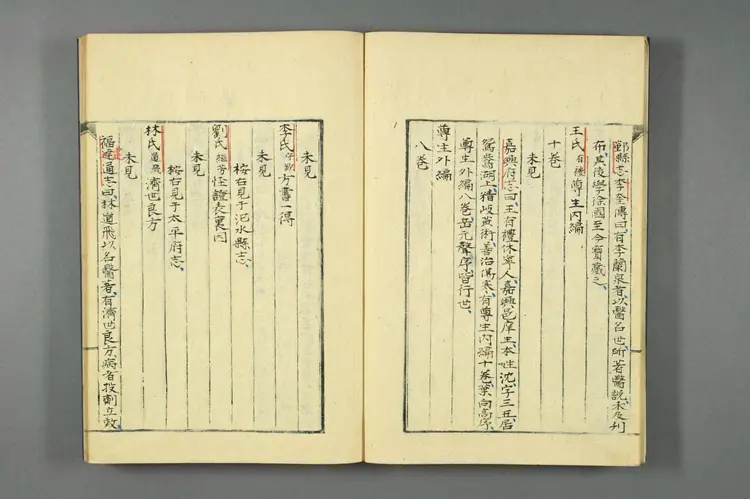 鄞縣志李全傳曰有李蘭泉者以醫名世所著醫說未及刊
布其後學徐國至今寶藏之
王氏尊生內編
十卷
未見
嘉興府志曰王有禮休寧人嘉興邑庠生本姓沈字三五居
鴛鴦湖上精岐黃術善治傷寒有尊生內編十卷葉向高序
尊生外編八卷岳元聲序皆行世
尊生外編
八卷
未見
李氏方書一得
未見
按右見于汜水縣志
劉氏怪證表裏因
未見
按右見于太平府志
林氏道飛濟世良方
未見
福建通志曰林道飛以名醫著有濟世良方病者投劑立效